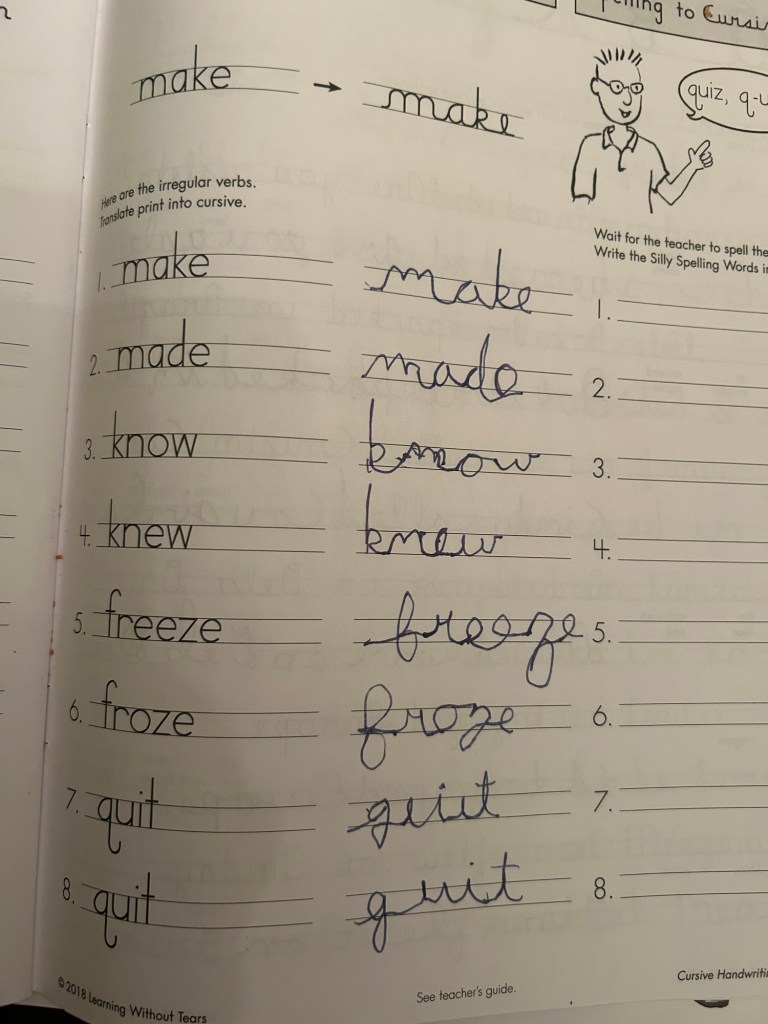 make → make
to Cursi
quiz, q-u
Here are the irregular verbs.
Translate print into cursive.
Wait for the teacher to spell the
Write the Silly Spelling Words in
1. make make
2. made made
3. know know
4. knew knew
5. freeze freeze
6. froze froze
7. quit quit
8. quit quit
1.
2.
3.
4.
5.
6.
7.
8.
© 2018 Learning Without Tears
See teacher's guide.
Cursive Handwriti